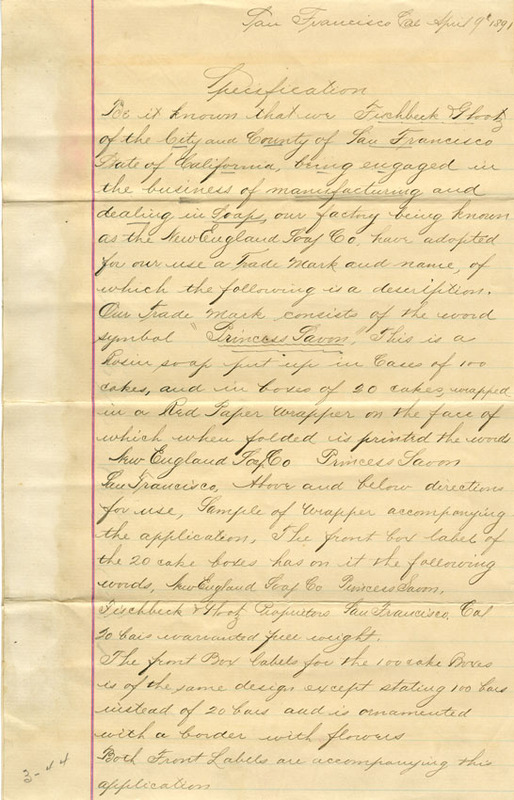 San Francisco Cal April 9th 1891
Specification
Be it known that we Fischbeck & Glootz
of the City and County of San Francisco
State of California, being engaged in
the business of manufacturing and
dealing in Soaps, our factory being known
as the New England Soap Co, have adopted
for our use a Trade Mark and name, of
which the following is a description.
Our Trade Mark consists of the word
symbol "Princess Savon". This is a
Rosin soap put up in Cases of 100
cakes, and in boxes of 20 cakes, wrapped
in a Red Paper Wrapper on the face of
which when folded is printed the words
New England Soap Co Princess Savon
San Francisco, Above and below directions
for use, Sample of Wrapper accompanying
the application. The front box label of
the 20 cake boxes has on it the following
words, New England Soap Co Princess Savon,
Fischbeck & Glootz Proprietors San Francisco, Cal
20 bars warranted full weight.
The front Box Labels for the 100 cake Boxes
is of the same design except stating 100 bars
instead of 20 bars and is ornamented
with a border with flowers
Both Front Labels are accompanying this
application
3-44